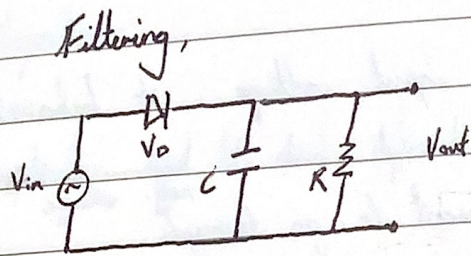 Filtering,
VD
Vin
C
R
Vout